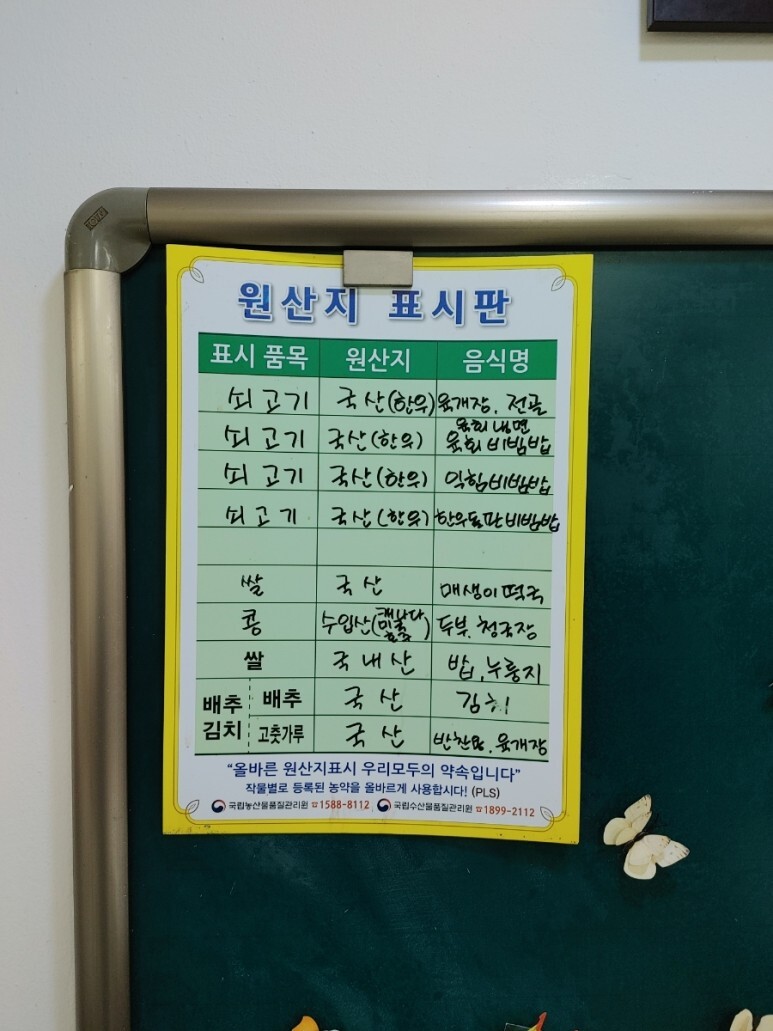 원산지 표시판
표시 품목 원산지 음식명
쇠고기 국산(한우) 육개장. 전골
육회냉면
쇠고기 국산(한우) 육회비빔밥
쇠고기 국산(한우) 익힘비빔밥
쇠고기 국산(한우) 한우돌판비빔밥
쌀 국산 매생이떡국
콩 수입산( ) 두부. 청국장
쌀 국내산 밥, 누룽지
배추김치 배추 국산 김치
고춧가루 국산 육개장
"올바른 원산지표시 우리모두의 약속입니다"
작물별로 등록된 농약을 올바르게 사용합시다! (PLS)
국립농산물품질관리원 ☎1588-8112 국립수산물품질관리원 ☎1899-2112